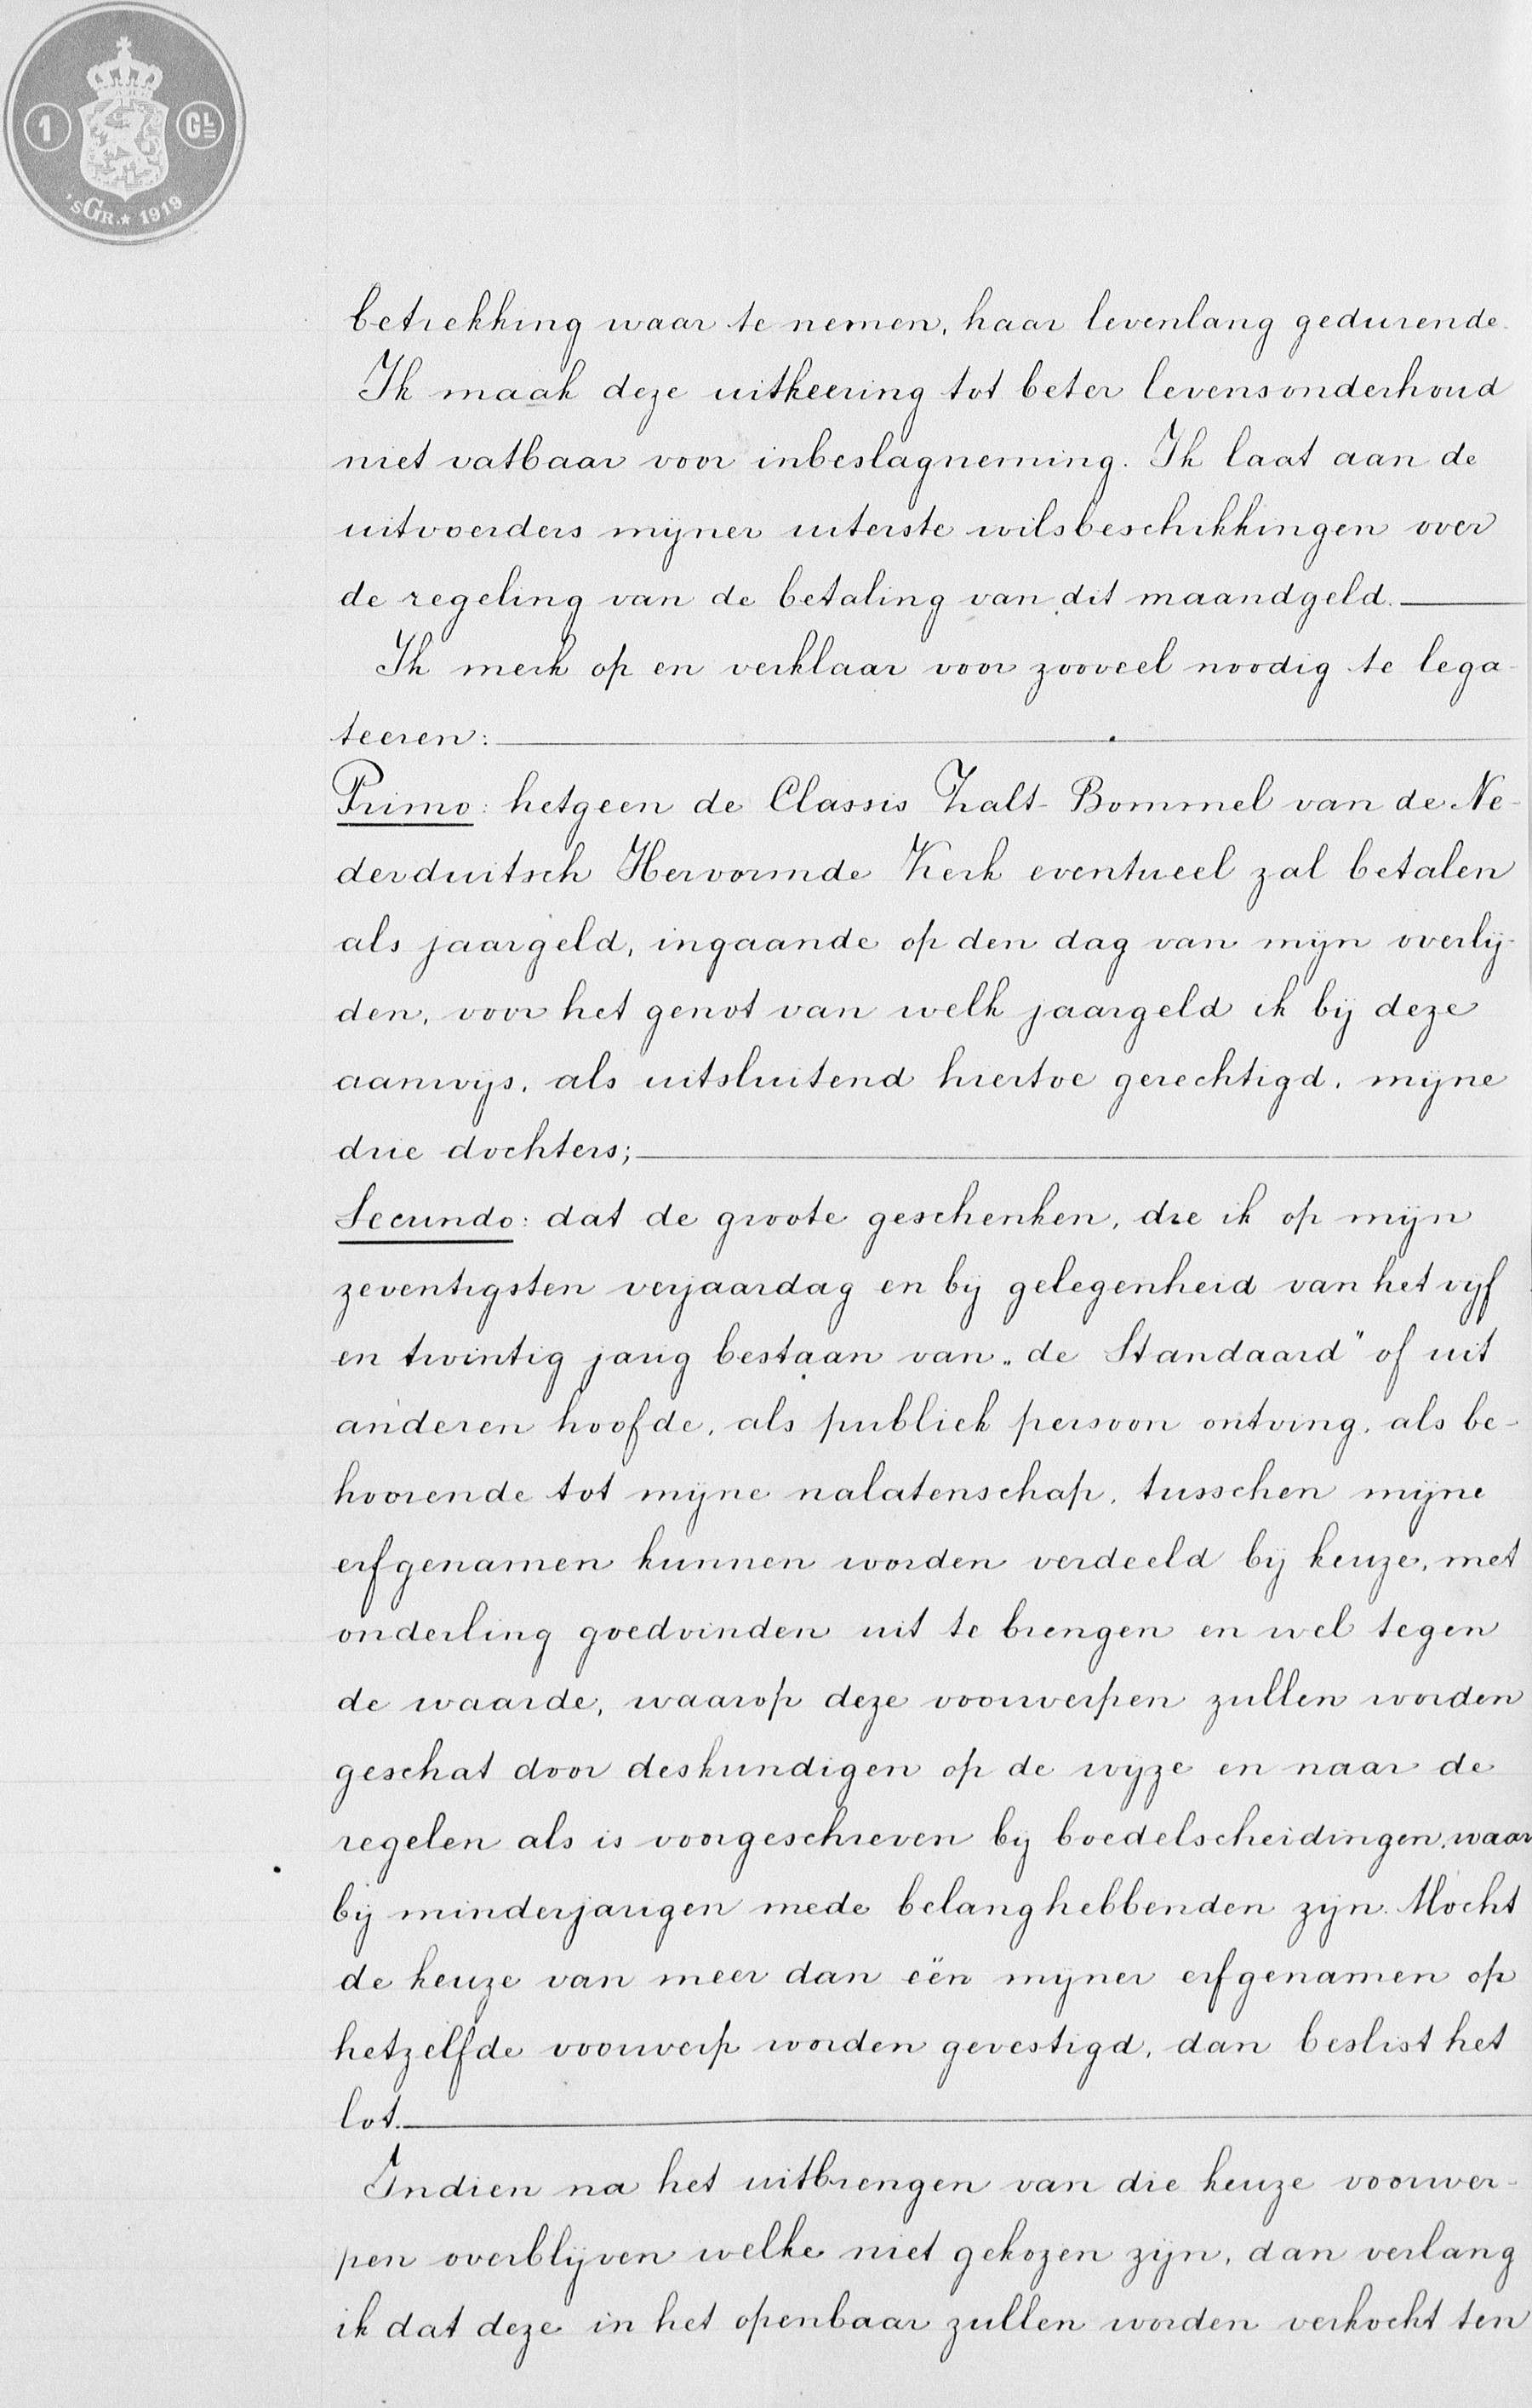 1 GL
'sGR.* 1919
betrekking waar te nemen, haar levenlang gedurende.
Ik maak deze uitkeering tot beter levensonderhoud
niet vatbaar voor inbeslagneming. Ik laat aan de
uitvoerders mijner uiterste wilsbeschikkingen over
de regeling van de betaling van dit maandgeld.
Ik merk op en verklaar voor zooveel noodig te lega-
teeren:
Primo: hetgeen de Classis Zalt-Bommel van de Ne-
derduitsch Hervormde Kerk eventueel zal betalen
als jaargeld, ingaande op den dag van mijn overlij-
den, voor het genot van welk jaargeld ik bij deze
aanwijs, als uitsluitend hiertoe gerechtigd, mijne
drie dochters;
Secundo: dat de groote geschenken, die ik op mijn
zeventigsten verjaardag en bij gelegenheid van het vijf
en twintig jarig bestaan van „de Standaard" of uit
anderen hoofde, als publiek persoon ontving, als be-
hoorende tot mijne nalatenschap, tusschen mijne
erfgenamen kunnen worden verdeeld bij keuze, met
onderling goedvinden uit te brengen en wel tegen
de waarde, waarop deze voorwerpen zullen worden
geschat door deskundigen op de wijze en naar de
regelen als is voorgeschreven bij boedelscheidingen, waar
bij minderjarigen mede belanghebbenden zijn. Mocht
de keuze van meer dan eën mijner erfgenamen op
hetzelfde voorwerp worden gevestigd, dan beslist het
lot.
Indien na het uitbrengen van die keuze voorwer-
pen overblijven welke niet gekozen zijn, dan verlang
ik dat deze in het openbaar zullen worden verkocht ten